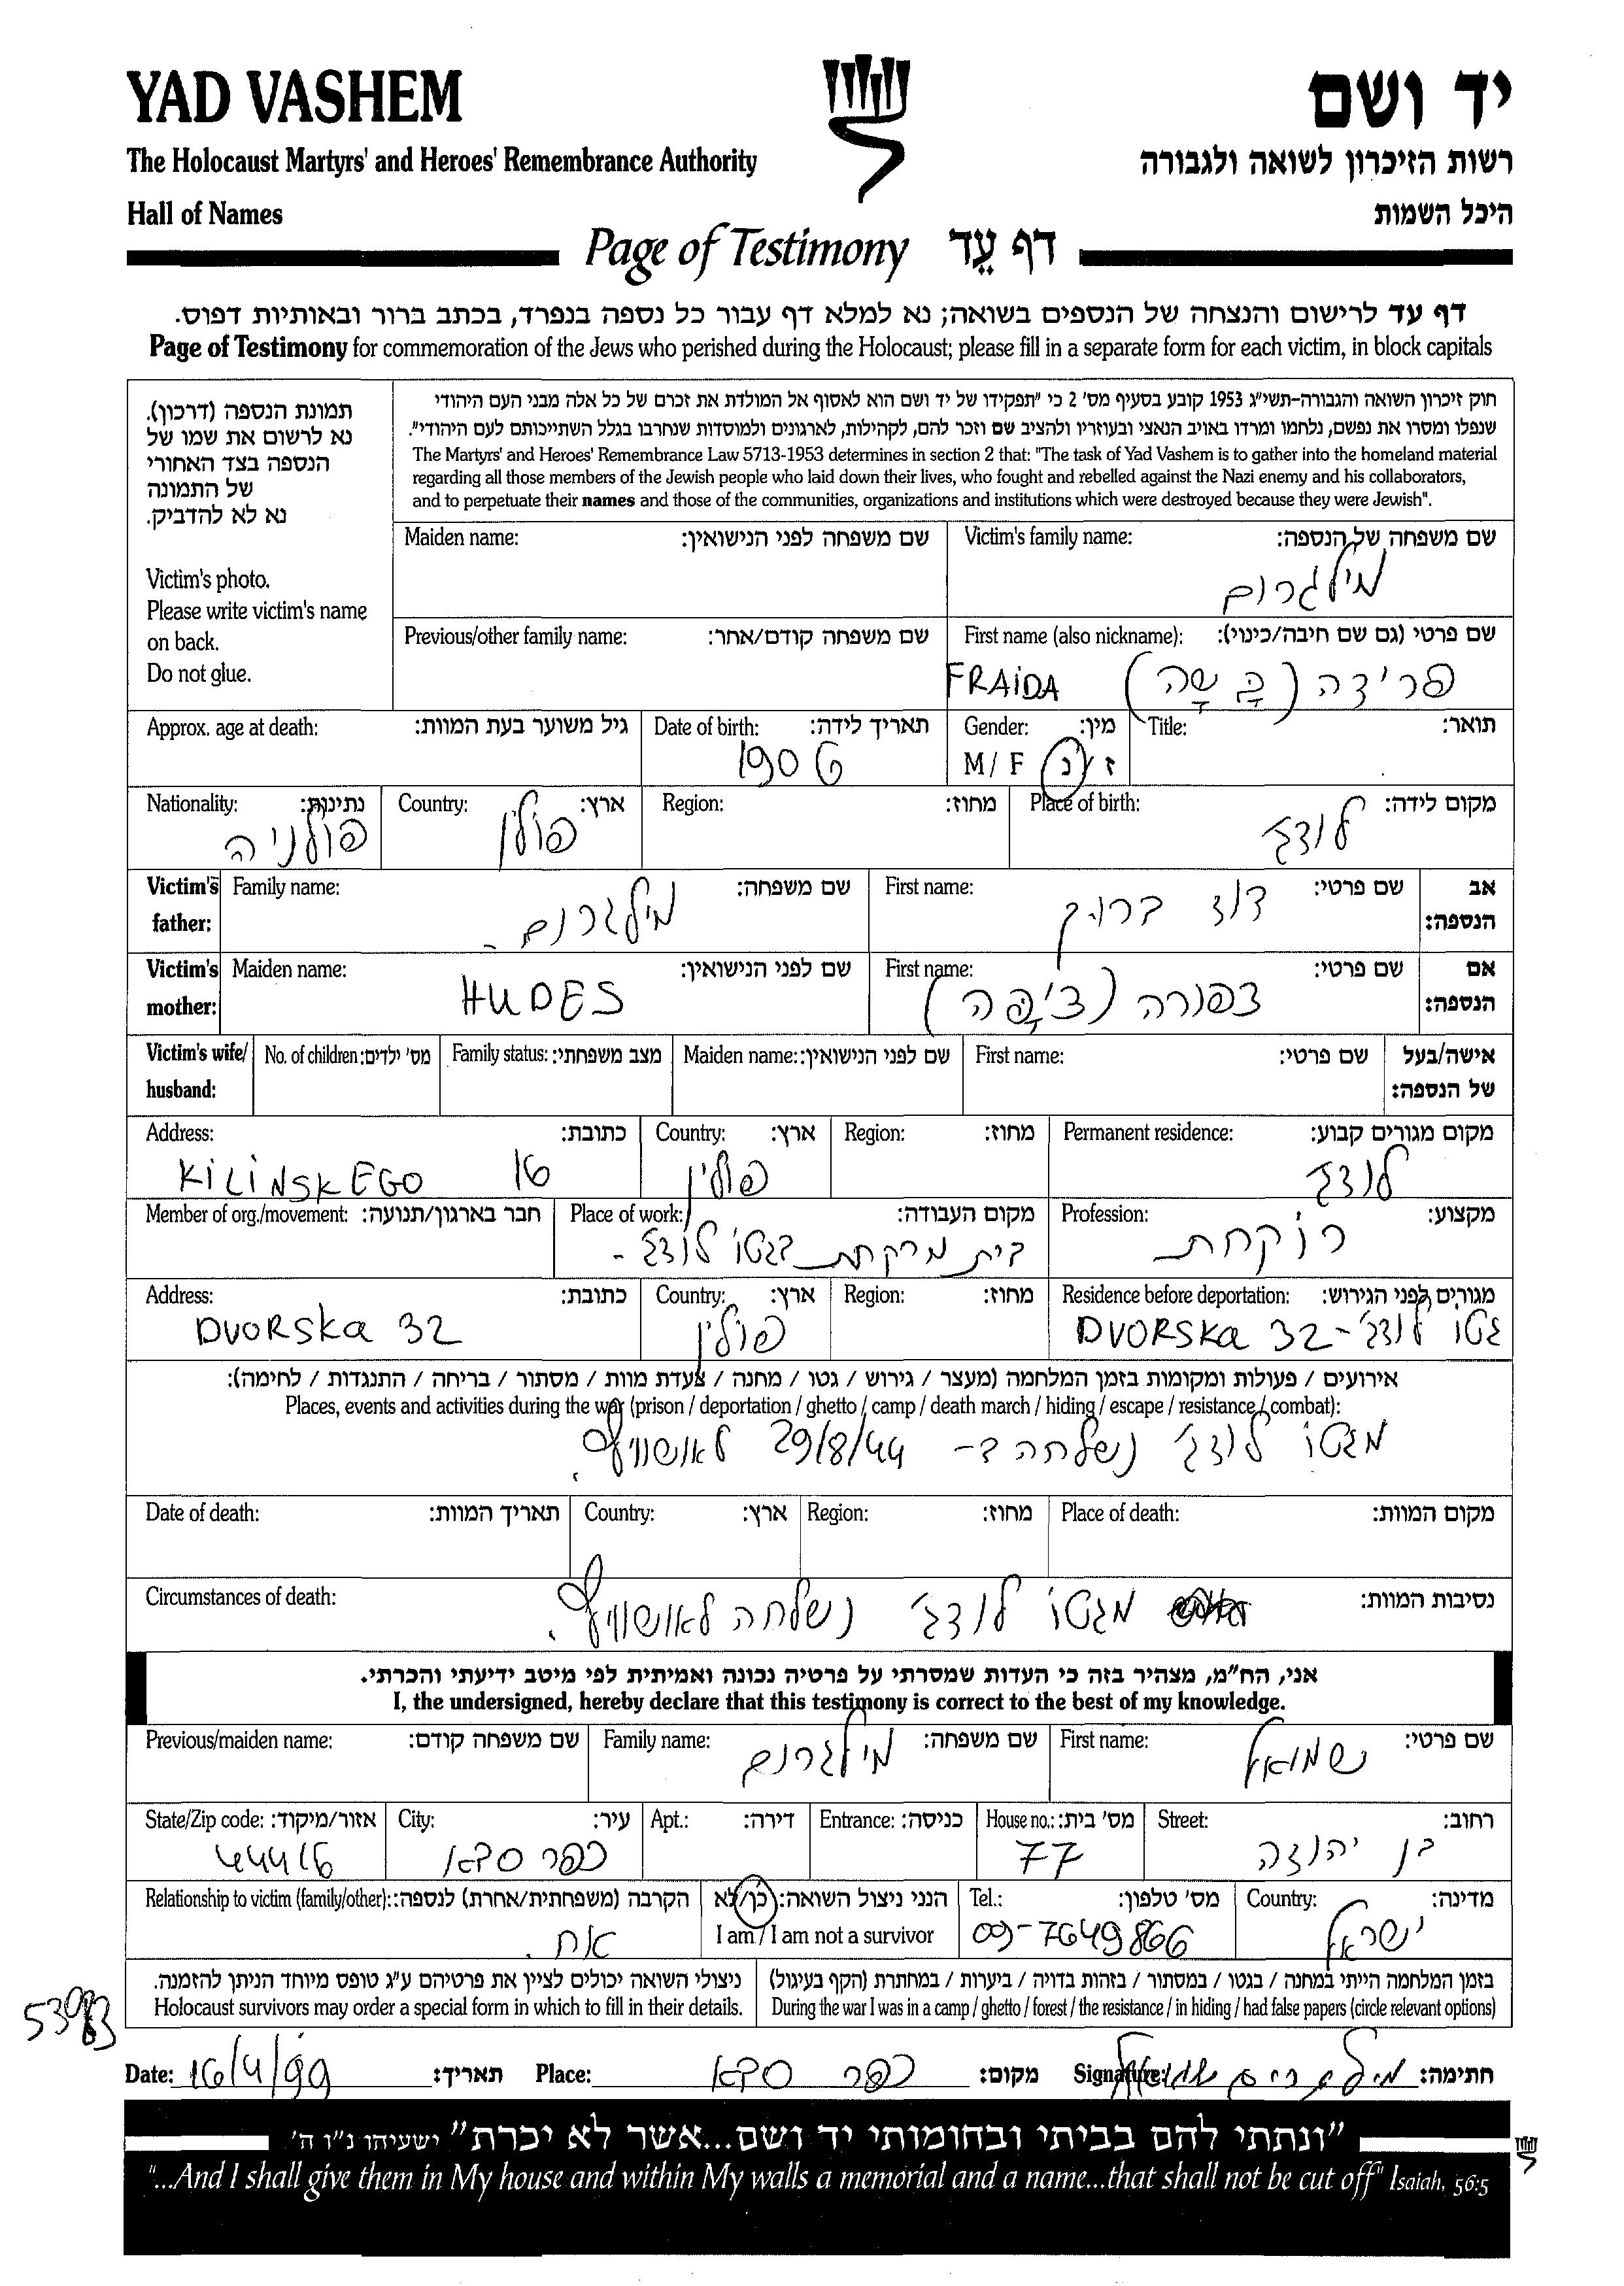 YAD VASHEM
יד ושם
The Holocaust Martyrs' and Heroes' Remembrance Authority
רשות הזיכרון לשואה ולגבורה
Hall of Names
היכל השמות
Page of Testimony דף עֵד
דף עד לרישום והנצחה של הנספים בשואה; נא למלא דף עבור כל נספה בנפרד, בכתב ברור ובאותיות דפוס.
Page of Testimony for commemoration of the Jews who perished during the Holocaust; please fill in a separate form for each victim, in block capitals
תמונת הנספה (דרכון).
נא לרשום את שמו של
הנספה בצד האחורי
של התמונה
נא לא להדביק.
Victim's photo.
Please write victim's name
on back.
Do not glue.
חוק זיכרון השואה והגבורה-תשי"ג 1953 קובע בסעיף מס' 2 כי "תפקידו של יד ושם הוא לאסוף אל המולדת את זכרם של כל אלה מבני העם היהודי
שנפלו ומסרו את נפשם, נלחמו ומרדו באויב הנאצי ובעוזריו ולהציב שם וזכר להם, לקהילות, לארגונים ולמוסדות שנחרבו בגלל השתייכותם לעם היהודי".
The Martyrs' and Heroes' Remembrance Law 5713-1953 determines in section 2 that: "The task of Yad Vashem is to gather into the homeland material
regarding all those members of the Jewish people who laid down their lives, who fought and rebelled against the Nazi enemy and his collaborators,
and to perpetuate their names and those of the communities, organizations and institutions which were destroyed because they were Jewish".
Maiden name: שם משפחה לפני הנישואין:
Victim's family name: שם משפחה של הנספה:
מילגרום
Previous/other family name: שם משפחה קודם/אחר:
First name (also nickname): שם פרטי (גם שם חיבה/כינוי):
FRAIDA פרידה (בָּשָה)
Approx. age at death: גיל משוער בעת המוות:
Date of birth: תאריך לידה:
1906
Gender: מין:
M / F ז / נ
Title: תואר:
Nationality: נתינות:
פולניה
Country: ארץ:
פולין
Region: מחוז:
Place of birth: מקום לידה:
לודג'
Victim's father: אב הנספה:
Family name: שם משפחה:
מילגרום -
First name: שם פרטי:
דוד ברוך
Victim's mother: אם הנספה:
Maiden name: שם לפני הנישואין:
HUDES
First name: שם פרטי:
צפורה (ציפָּה)
Victim's wife/ husband: אישה/בעל של הנספה:
No. of children: מס' ילדים:
Family status: מצב משפחתי:
Maiden name: שם לפני הנישואין:
First name: שם פרטי:
Address: כתובת:
KILINSKEGO 16
Country: ארץ:
פולין
Region: מחוז:
Permanent residence: מקום מגורים קבוע:
לודג'
Member of org./movement: חבר בארגון/תנועה:
Place of work: מקום העבודה:
בית מרקחת בגטו לודג' -
Profession: מקצוע:
רוקחת
Address: כתובת:
DVORSKA 32
Country: ארץ:
פולין
Region: מחוז:
Residence before deportation: מגורים לפני הגירוש:
גטו לודג'- DVORSKA 32
אירועים / פעולות ומקומות בזמן המלחמה (מעצר / גירוש / גטו / מחנה / צעדת מוות / מסתור / בריחה / התנגדות / לחימה):
Places, events and activities during the war (prison / deportation / ghetto / camp / death march / hiding / escape / resistance / combat):
מגטו לודג' נשלחה ב- 29/8/44 לאושוויץ.
Date of death: תאריך המוות:
Country: ארץ:
Region: מחוז:
Place of death: מקום המוות:
Circumstances of death: נסיבות המוות:
מגטו לודג' נשלחה לאושוויץ.
אני, הח"מ, מצהיר בזה כי העדות שמסרתי על פרטיה נכונה ואמיתית לפי מיטב ידיעתי והכרתי.
I, the undersigned, hereby declare that this testimony is correct to the best of my knowledge.
Previous/maiden name: שם משפחה קודם:
Family name: שם משפחה:
מילגרום
First name: שם פרטי:
שמואל
State/Zip code: אזור/מיקוד:
44416
City: עיר:
כפר סבא
Apt.: דירה:
Entrance: כניסה:
House no.: מס' בית:
77
Street: רחוב:
בן יהודה
Relationship to victim (family/other): הקרבה (משפחתית/אחרת) לנספה:
אח.
הנני ניצול השואה: כן/לא
I am / I am not a survivor
Tel.: מס' טלפון:
09-7649866
Country: מדינה:
ישראל
ניצולי השואה יכולים לציין את פרטיהם ע"ג טופס מיוחד הניתן להזמנה.
Holocaust survivors may order a special form in which to fill in their details.
בזמן המלחמה הייתי במחנה / בגטו / במסתור / בזהות בדויה / ביערות / במחתרת (הקף בעיגול)
During the war I was in a camp / ghetto / forest / the resistance / in hiding / had false papers (circle relevant options)
Date: 16/4/99 תאריך:
Place: כפר סבא מקום:
Signature: מילגרום שמואל חתימה:
"ונתתי להם בביתי ובחומותי יד ושם...אשר לא יכרת" ישעיהו נ"ו ה'
"...And I shall give them in My house and within My walls a memorial and a name...that shall not be cut off" Isaiah, 56:5